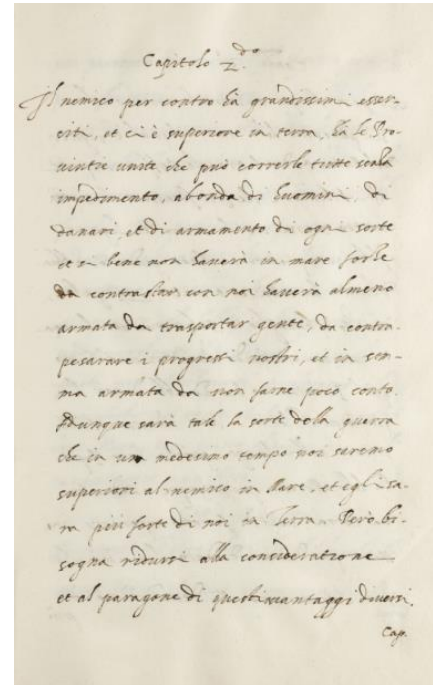 Capitolo 2.do
Il nemico per contro hà grandissimi esser-
citi, et ci è superiore in terra, hà le Pro-
vintie unite che può correrle tutte senza
impedimento, abonda di huomini, di
danari, et di armamento di ogni sorte
et se bene non haverà in mare forze
da contrastar con noi haverà almeno
armata da trasportar gente, da contra-
pesarare i progressi nostri, et in som-
ma armata da non farne poco conto.
Adunque sarà tale la sorte della guerra
che in un medesimo tempo noi saremo
superiori al nemico in Mare, et egli sa-
ra più forte di noi in Terra. Però bi-
sogna ridursi alla consideratione
et al paragone di questi vantaggi diversi.
Cap.